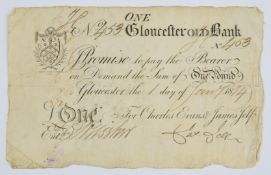 ONE
No. 453 Gloucester Old Bank
No. 453
I Promise to pay the Bearer
on Demand the Sum of One Pound
Gloucester the 1 day of Jany. 1814
For Charles Evans & James Jelf
£ One
Entd.
Jas. Jelf